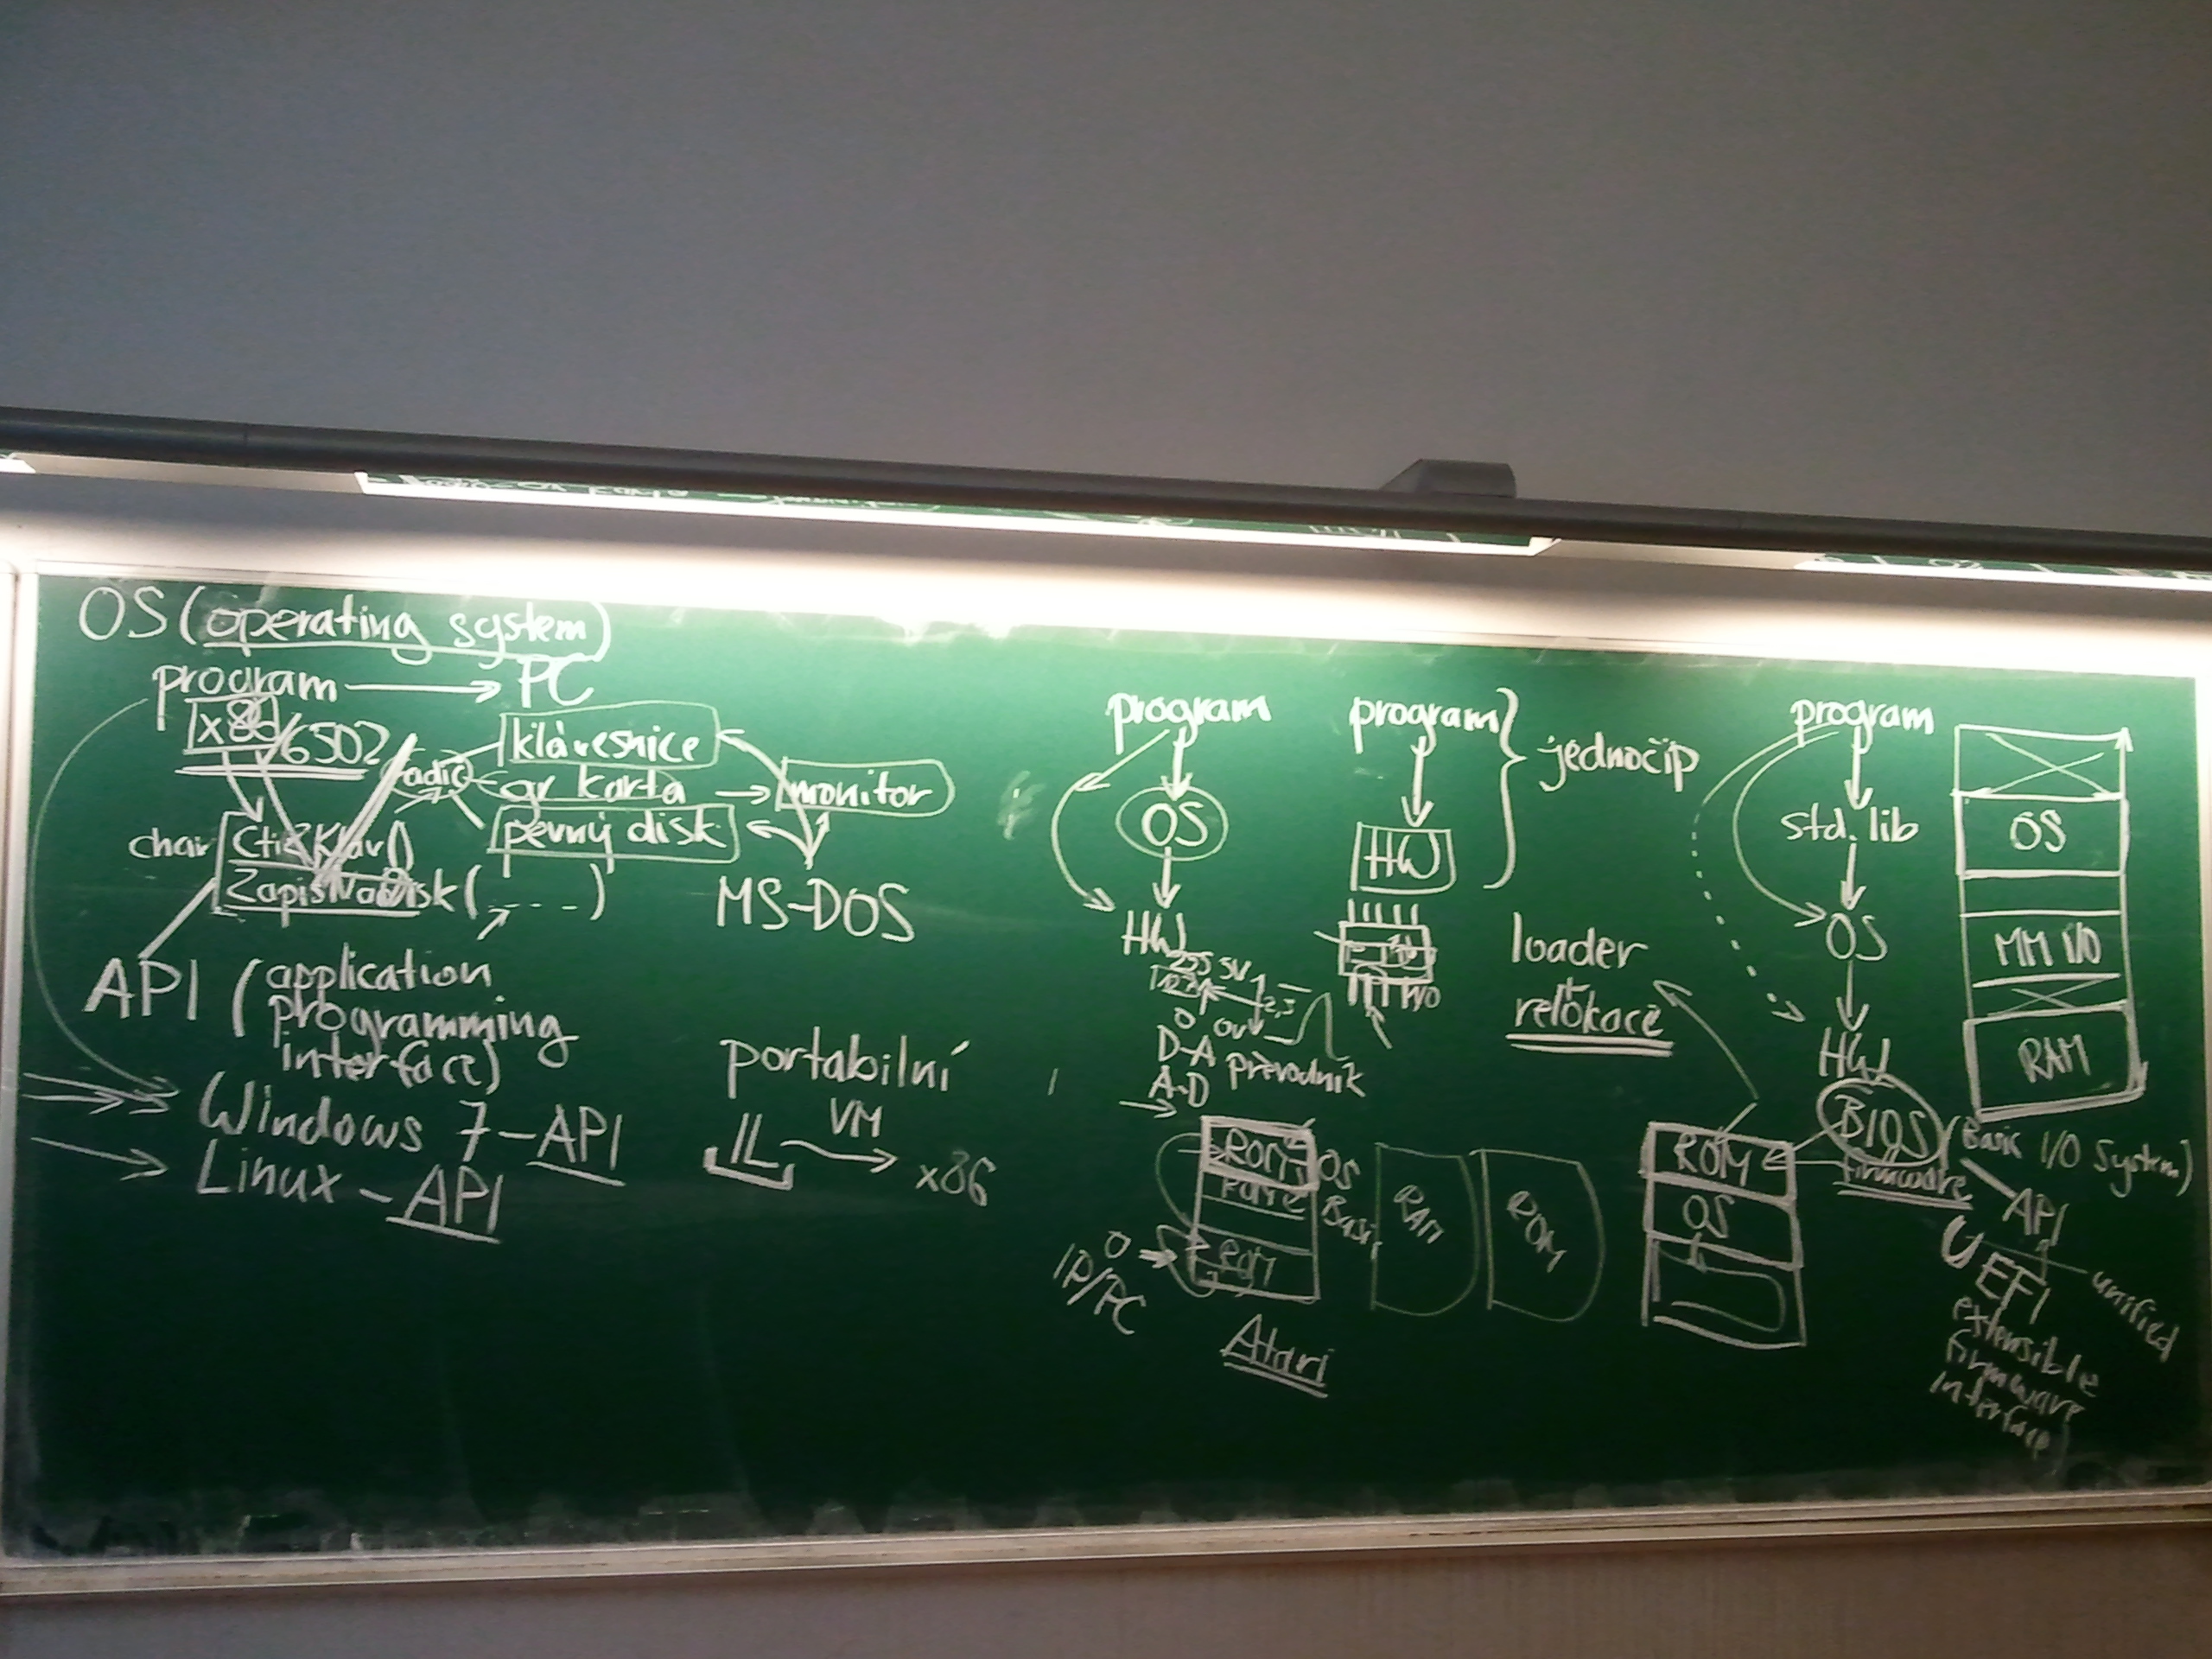 OS (operating system)
program → PC
x86/6502
řadič
klávesnice
gr karta → monitor
pevný disk
char CtiZKláv()
ZapisNaDisk (----)
MS-DOS
API (application
programming
interface)
Windows 7 - API
Linux - API
portabilní
VM
IL
x86
program
OS
HW
255 5V
127
2,5
0 0V
D-A převodník
A-D
ROM OS
Basic
ROM
0
IP/PC
Atari
RAM
ROM
program
HW
jednočip
I/O
loader
relokace
program
std. lib
OS
HW
BIOS (Basic I/O System)
firmware
API
UEFI
unified
extensible
firmware
interface
ROM
OS
OS
MM I/O
RAM